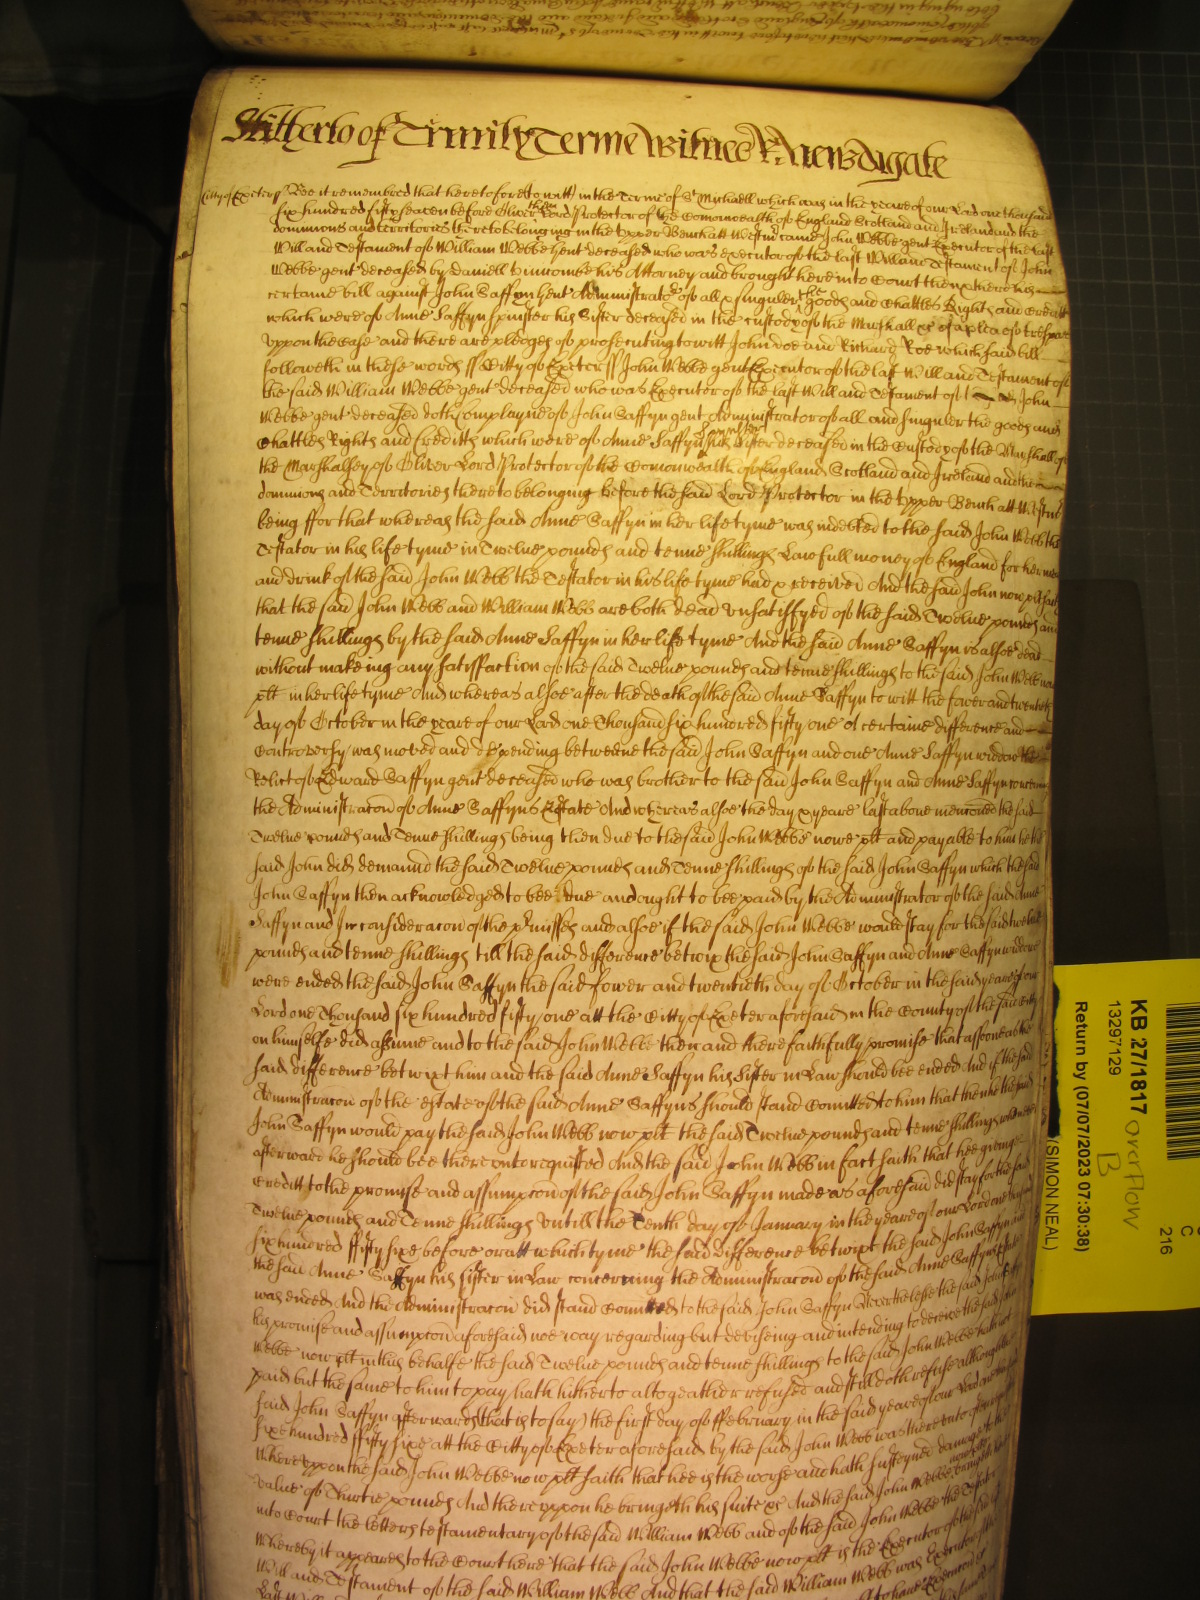 Hitherto of Trinity Terme Witnes R: Newdigate
Citty of Exeter ss Bee it remembred that heretofore (to witt) in the Terme of St Michaell which was in the yeare of our Lord one thousand
six hundred fifty seaven before Oliver then Lord Protector of the Comonwealth of England Scotland and Ireland and the
dominions and territories thereto belonging in the upper Bench att Westm came John Webbe gent Executor of the last
Will and Testament of William Webbe gent deceased who was executor of the last Will and Testament of John
Webbe gent deceased by Daniell Hunncombe his Attorney and brought here into Court then & there his
certaine bill against John Saffyn gent Administrator of all & singuler the goods and Chattles Rights and Creditts
which were of Anne Saffyn spinster his Sister deceased in the custody of the Marshall &c of a plea of trespas
uppon the Case and there are pledges of prosecuting to witt John Doe and Richard Roe which said bill
followeth in these words ss Citty of Exeter ss John Webbe gent Executor of the last Will and Testament of
the said William Webbe gent deceased who was Executor of the last Will and Testament of John
Webbe gent deceased doth complayne of John Saffyn gent Administrator of all and singuler the goods and
Chattles Rights and Creditts which were of Anne Saffyn Spinster his Sister deceased in the Custody of the Marshall of
the Marshalsey of Oliver Lord Protector of the Comonwealth of England Scotland and Ireland and the
dominions and Territories thereto belonging before the said Lord Protector in the upper Bench att Westm
being ffor that whereas the said Anne Saffyn in her life tyme was indebted to the said John Webb the
Testator in his life tyme in Twelve pounds and tenne shillings Lawfull money of England for her meate
and drink of the said John Webb the Testator in his life tyme had & received And the said John now plt saith
that the said John Webb and William Webb are both dead unsatisfyed of the said Twelve pounds and
tenne shillings by the said Anne Saffyn in her life tyme And the said Anne Saffyn is alsoe dead
without makeing any satisfaction of the said Twelve pounds and tenne shillings to the said John Webb now
plt in her life tyme And whereas alsoe after the death of the said Anne Saffyn to witt the fower and twentith
day of October in the yeare of our Lord one Thousand six hundred fifty one a certaine difference and
Controversy was moved and depending betweene the said John Saffyn and one Anne Saffyn widdow the
Relict of Edward Saffyn gent deceased who was brother to the said John Saffyn and Anne Saffyn concerning
the Administracon of Anne Saffyns Estate And whereas alsoe the day & yeare last above mencioned the said
Twelve pounds and Tenne shillings being then due to the said John Webbe nowe plt and payable to him he the
said John did demannd the said Twelve pounds and Tenne shillings of the said John Saffyn which the said
John Saffyn then acknowledged to bee due and ought to bee paid by the Administrator of the said Anne
Saffyn and In consideracon of the p'misses and alsoe if the said John Webbe would stay for the said twelve
pounds and tenne shillings till the said difference betwix the said John Saffyn and Anne Saffyn widdow
were ended the said John Saffyn the said fower and twentieth day of October in the said yeare of our
Lord one Thousand six hundred fifty one att the Citty of Exeter aforesaid in the County of the same Citty
on himselfe did assume and to the said John Webbe then and there faithfully promise that assoone as the
said difference betwixt him and the said Anne Saffyn his Sister in Law should bee ended And if the said
Administracon of the estate of the said Anne Saffyns should stand Comitted to him that then he the said
John Saffyn would pay the said John Webb now plt the said Twelve pounds and tenne shillings when
afterward he should bee thereunto requested And the said John Webb in fact saith that hee giveing
Creditt to the promise and assumpcon of the said John Saffyn made as aforesaid did stay for the said
Twelve pounds and Tenne shillings untill the Tenth day of January in the yeare of our Lord one thousand
six hundred ffifty sixe before or att which tyme the said difference betwixt the said John Saffyn and
the said Anne Saffyn his sister in Law concerning the Administracon of the said Anne Saffyns Estate
was ended And the Administracon did stand Comitted to the said John Saffyn Neverthelesse the said John Saffyn
his promise and assumpcon aforesaid noe way regarding but deviseing and intending to deceive the said John
Webbe now plt in this behalfe the said Twelve pounds and tenne shillings to the said John Webbe hath not
paid but the same to him to pay hath hitherto altogeather refused and still doth refuse although the
said John Saffyn afterwards (that is to say) the first day of ffebruary in the said yeare of our Lord one thousand
sixe hundred ffifty sixe att the Citty of Exeter aforesaid by the said John Webb was thereunto often requested
Whereuppon the said John Webbe now plt saith that hee is the worse and hath susteyned damage to the
value of Thirtie pounds And thereuppon he bringeth his suite &c And the said John Webbe now plt bringeth here
into Court the letters testamentary of the said William Webb and of the said John Webbe the Testator
Whereby it appeares to the Court here that the said John Webbe now plt is the Executor of the last
Will and Testament of the said William Webb And that the said William Webb was Executor of the
KB 27/1817 overflow
B
13297129
Return by (07/07/2023 07:30:38)
(SIMON NEAL)
C
216